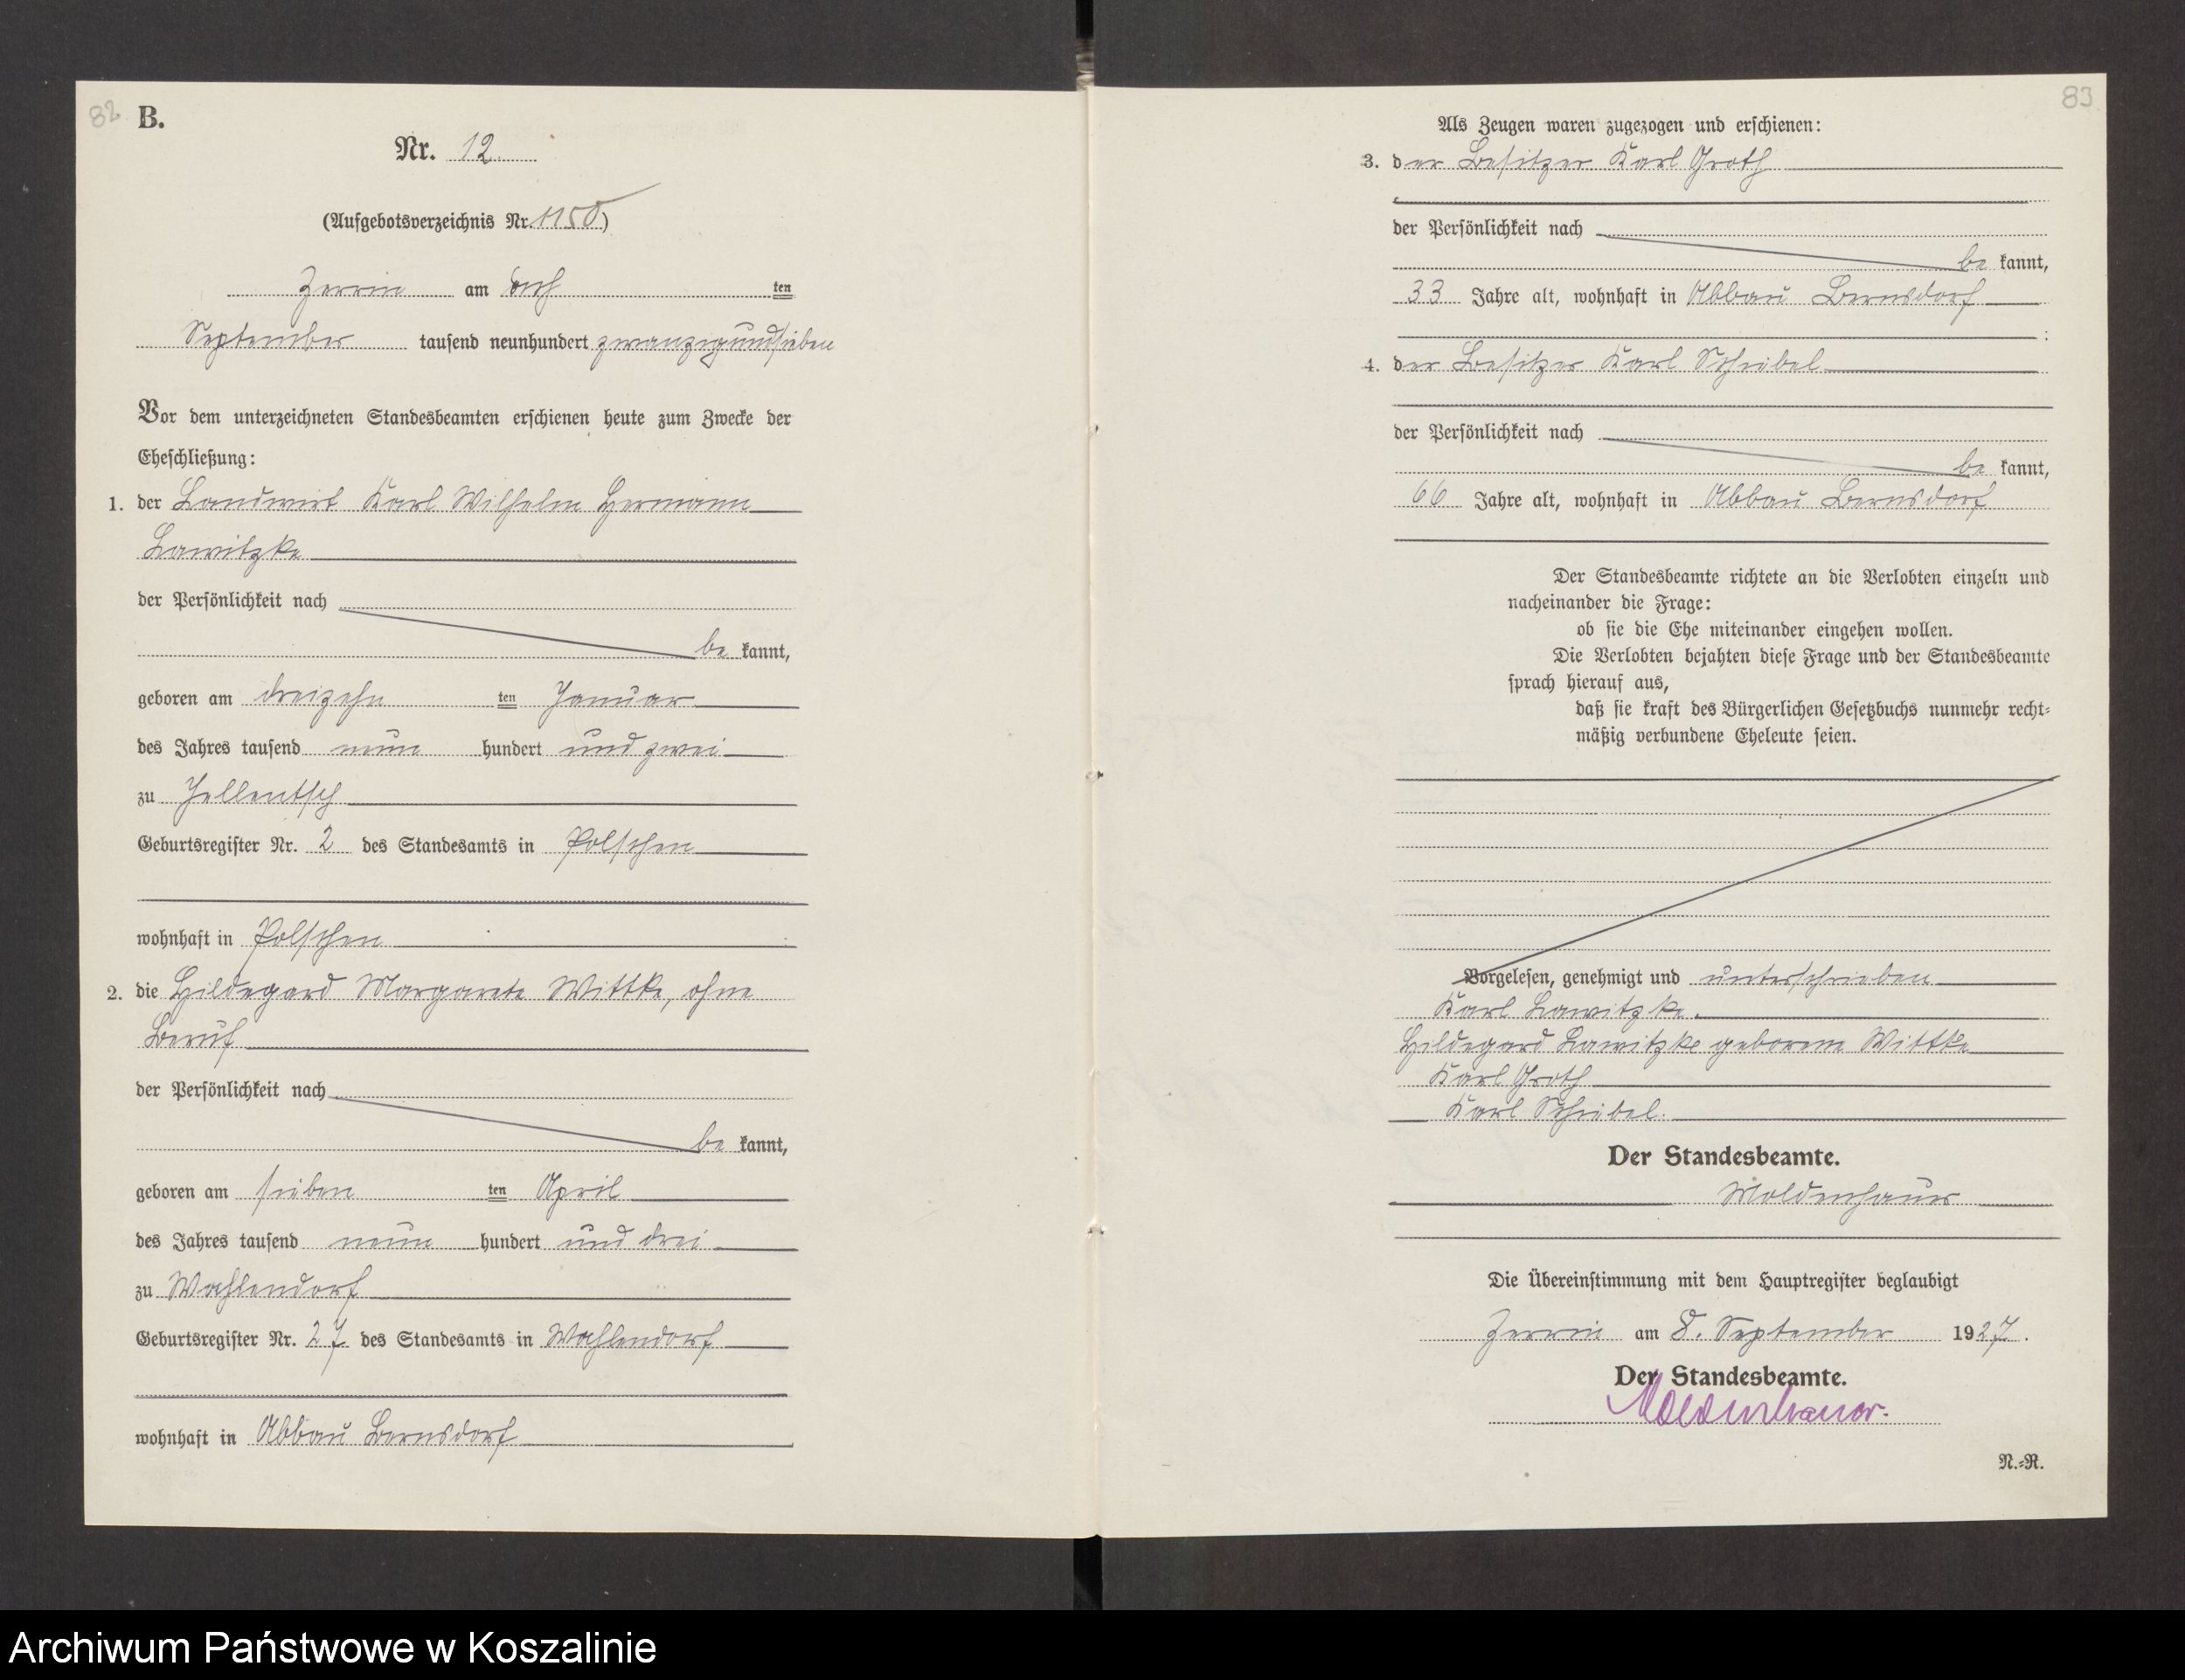 82
B.
Nr. 12
(Aufgebotsverzeichnis Nr. 1150)
Zerrin am acht ten
September tausend neunhundert zwanzigundsieben
Vor dem unterzeichneten Standesbeamten erschienen heute zum Zwecke der
Eheschließung:
1. der Landwirt Karl Wilhelm Hermann
Lawitzke
der Persönlichkeit nach
be kannt,
geboren am dreizehn ten Januar
des Jahres tausend neun hundert und zwei
zu Jellentsch
Geburtsregister Nr. 2 des Standesamts in Polschen
wohnhaft in Polschen
2. die Hildegard Margarete Wittke, ohne
Beruf
der Persönlichkeit nach
be kannt,
geboren am sieben ten April
des Jahres tausend neun hundert und drei
zu Wahlendorf
Geburtsregister Nr. 27 des Standesamts in Wahlendorf
wohnhaft in Abbau Bernsdorf
83
Als Zeugen waren zugezogen und erschienen:
3. der Besitzer Karl Groth
der Persönlichkeit nach
be kannt,
33 Jahre alt, wohnhaft in Abbau Bernsdorf
;
4. der Besitzer Karl Schiebel
der Persönlichkeit nach
be kannt,
66 Jahre alt, wohnhaft in Abbau Bernsdorf
Der Standesbeamte richtete an die Verlobten einzeln und
nacheinander die Frage:
ob sie die Ehe miteinander eingehen wollen.
Die Verlobten bejahten diese Frage und der Standesbeamte
sprach hierauf aus,
daß sie kraft des Bürgerlichen Gesetzbuchs nunmehr recht-
mäßig verbundene Eheleute seien.
Vorgelesen, genehmigt und unterschrieben
Karl Lawitzke.
Hildegard Lawitzke geborene Wittke
Karl Groth
Karl Schiebel.
Der Standesbeamte.
Moldenhauer
Die Übereinstimmung mit dem Hauptregister beglaubigt
Zerrin am 8. September 1927.
Der Standesbeamte.
Moldenhauer.
N.-R.
Archiwum Państwowe w Koszalinie